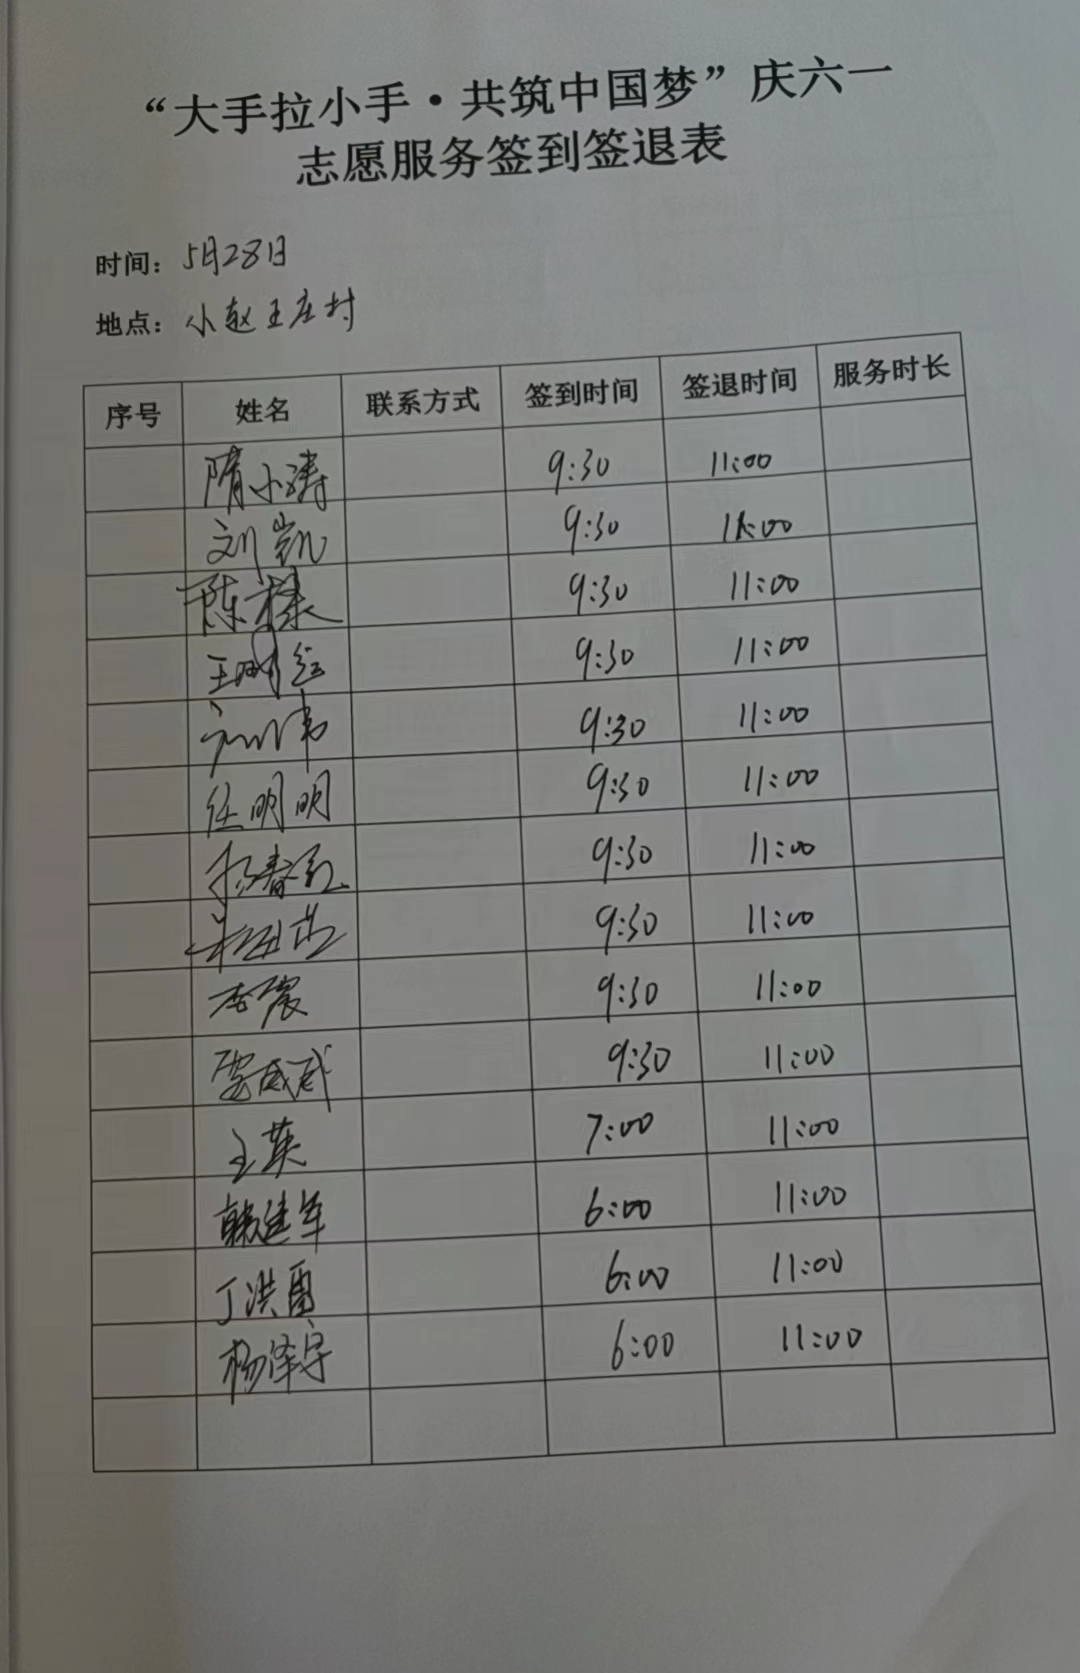 “大手拉小手·共筑中国梦”庆六一
志愿服务签到签退表
时间：5月28日
地点：小赵王庄村
序号 姓名 联系方式 签到时间 签退时间 服务时长
隋小涛 9:30 11:00
刘凯 9:30 11:00
陈 9:30 11:00
王 9:30 11:00
9:30 11:00
任明明 9:30 11:00
杨春 9:30 11:00
9:30 11:00
李震 9:30 11:00
威威 9:30 11:00
王英 7:00 11:00
韩建军 6:00 11:00
丁洪雷 6:00 11:00
杨泽宇 6:00 11:00